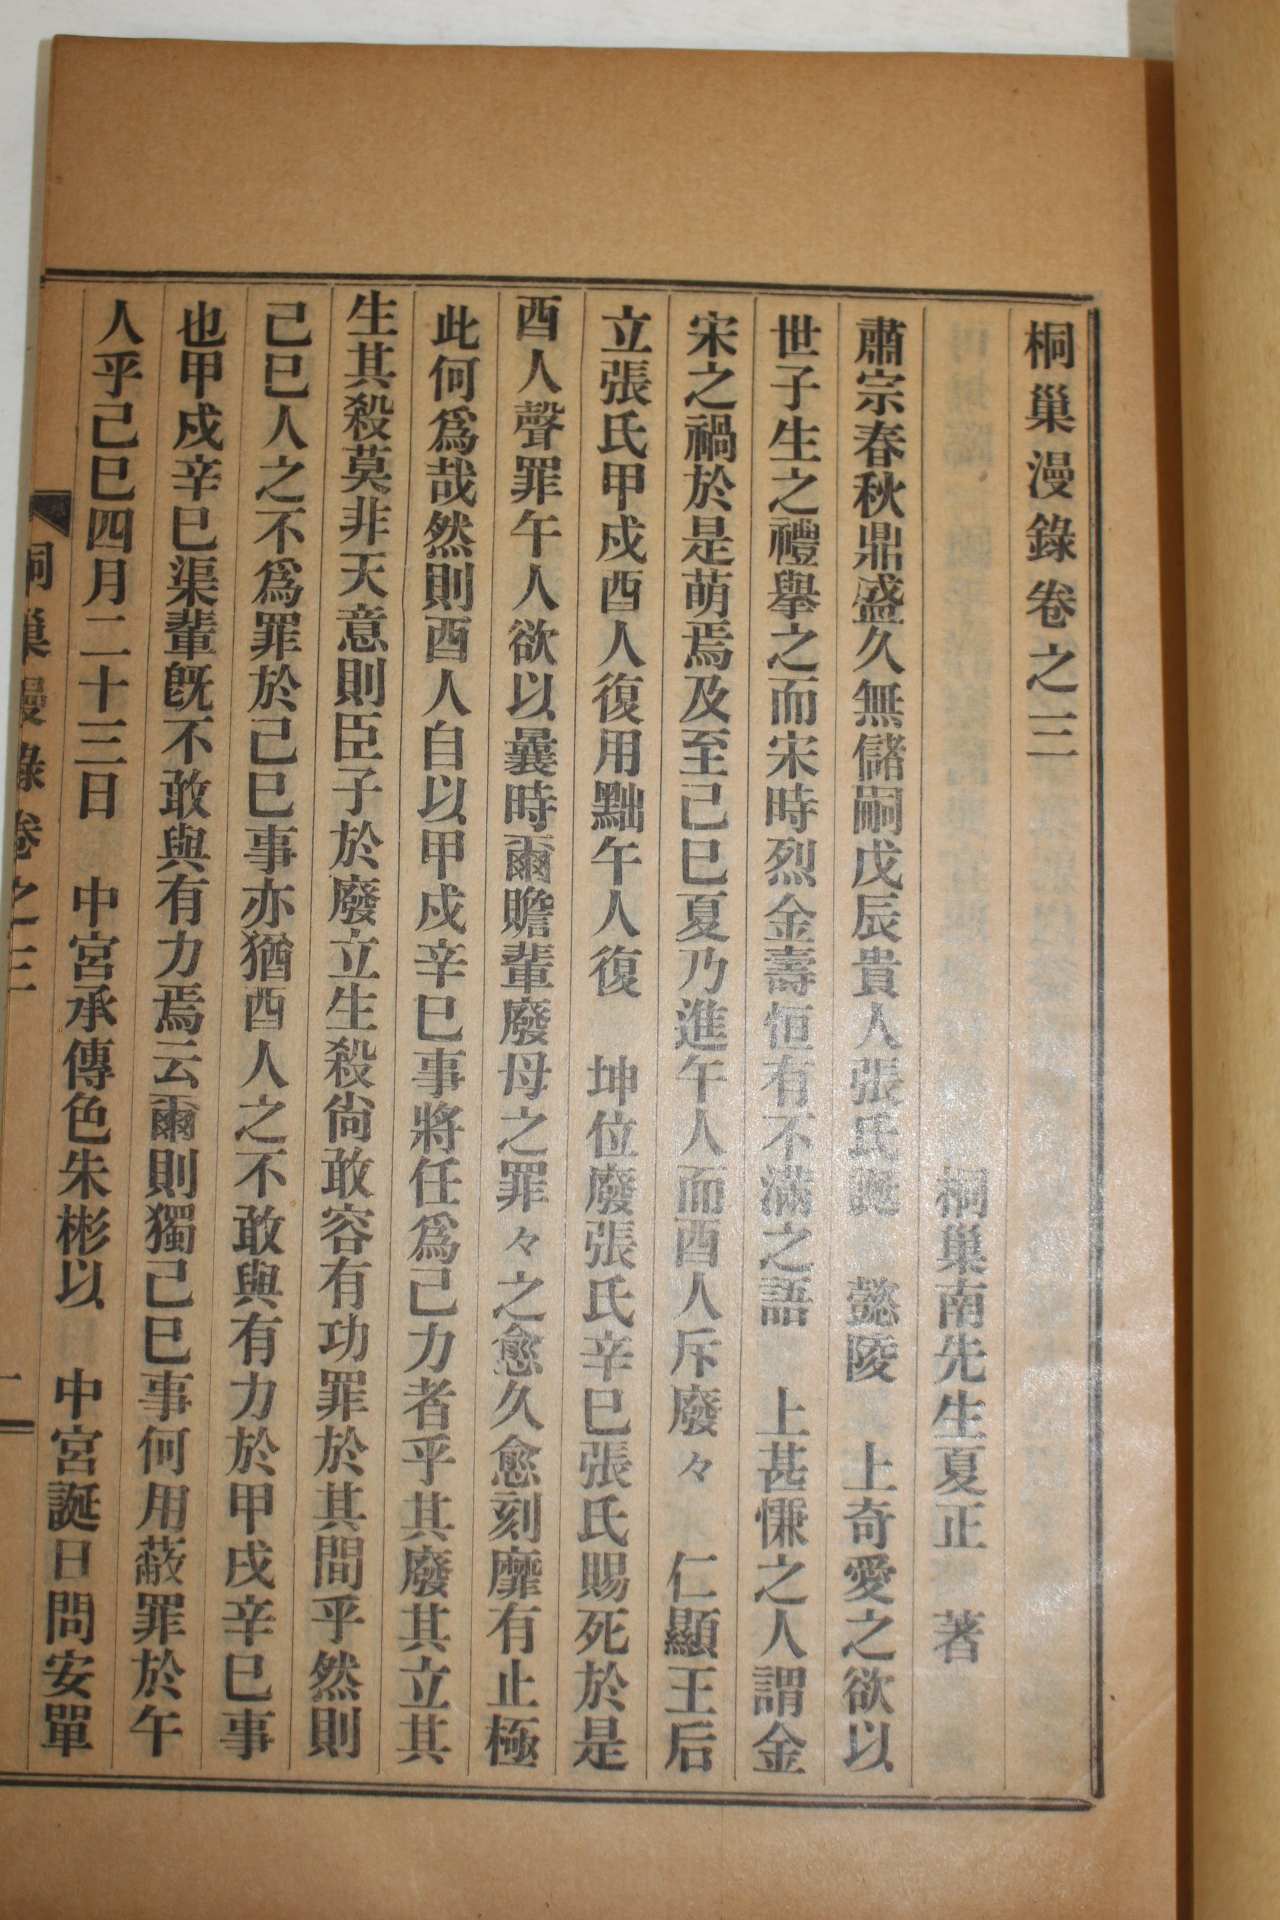 桐巢漫錄卷之三
桐巢南先生夏正　著
肅宗春秋鼎盛久無儲嗣戊辰貴人張氏誕　懿陵　上奇愛之欲以
世子生之禮擧之而宋時烈金壽恒有不滿之語　上甚慊之人謂金
宋之禍於是萌焉及至己巳夏乃進午人而酉人斥廢々　仁顯王后
立張氏甲戌酉人復用黜午人復　坤位廢張氏辛巳張氏賜死於是
酉人聲罪午人欲以曩時爾瞻輩廢母之罪々之愈久愈刻靡有止極
此何爲哉然則酉人自以甲戌辛巳事將任爲己力者乎其廢其立其
生其殺莫非天意則臣子於廢立生殺尙敢容有功罪於其間乎然則
己巳人之不爲罪於己巳事亦猶酉人之不敢與有力於甲戌辛巳事
也甲戌辛巳渠輩旣不敢與有力焉云爾則獨己巳事何用蔽罪於午
人乎己巳四月二十三日　中宮承傳色朱彬以　中宮誕日問安單
桐巢漫錄卷之三　一